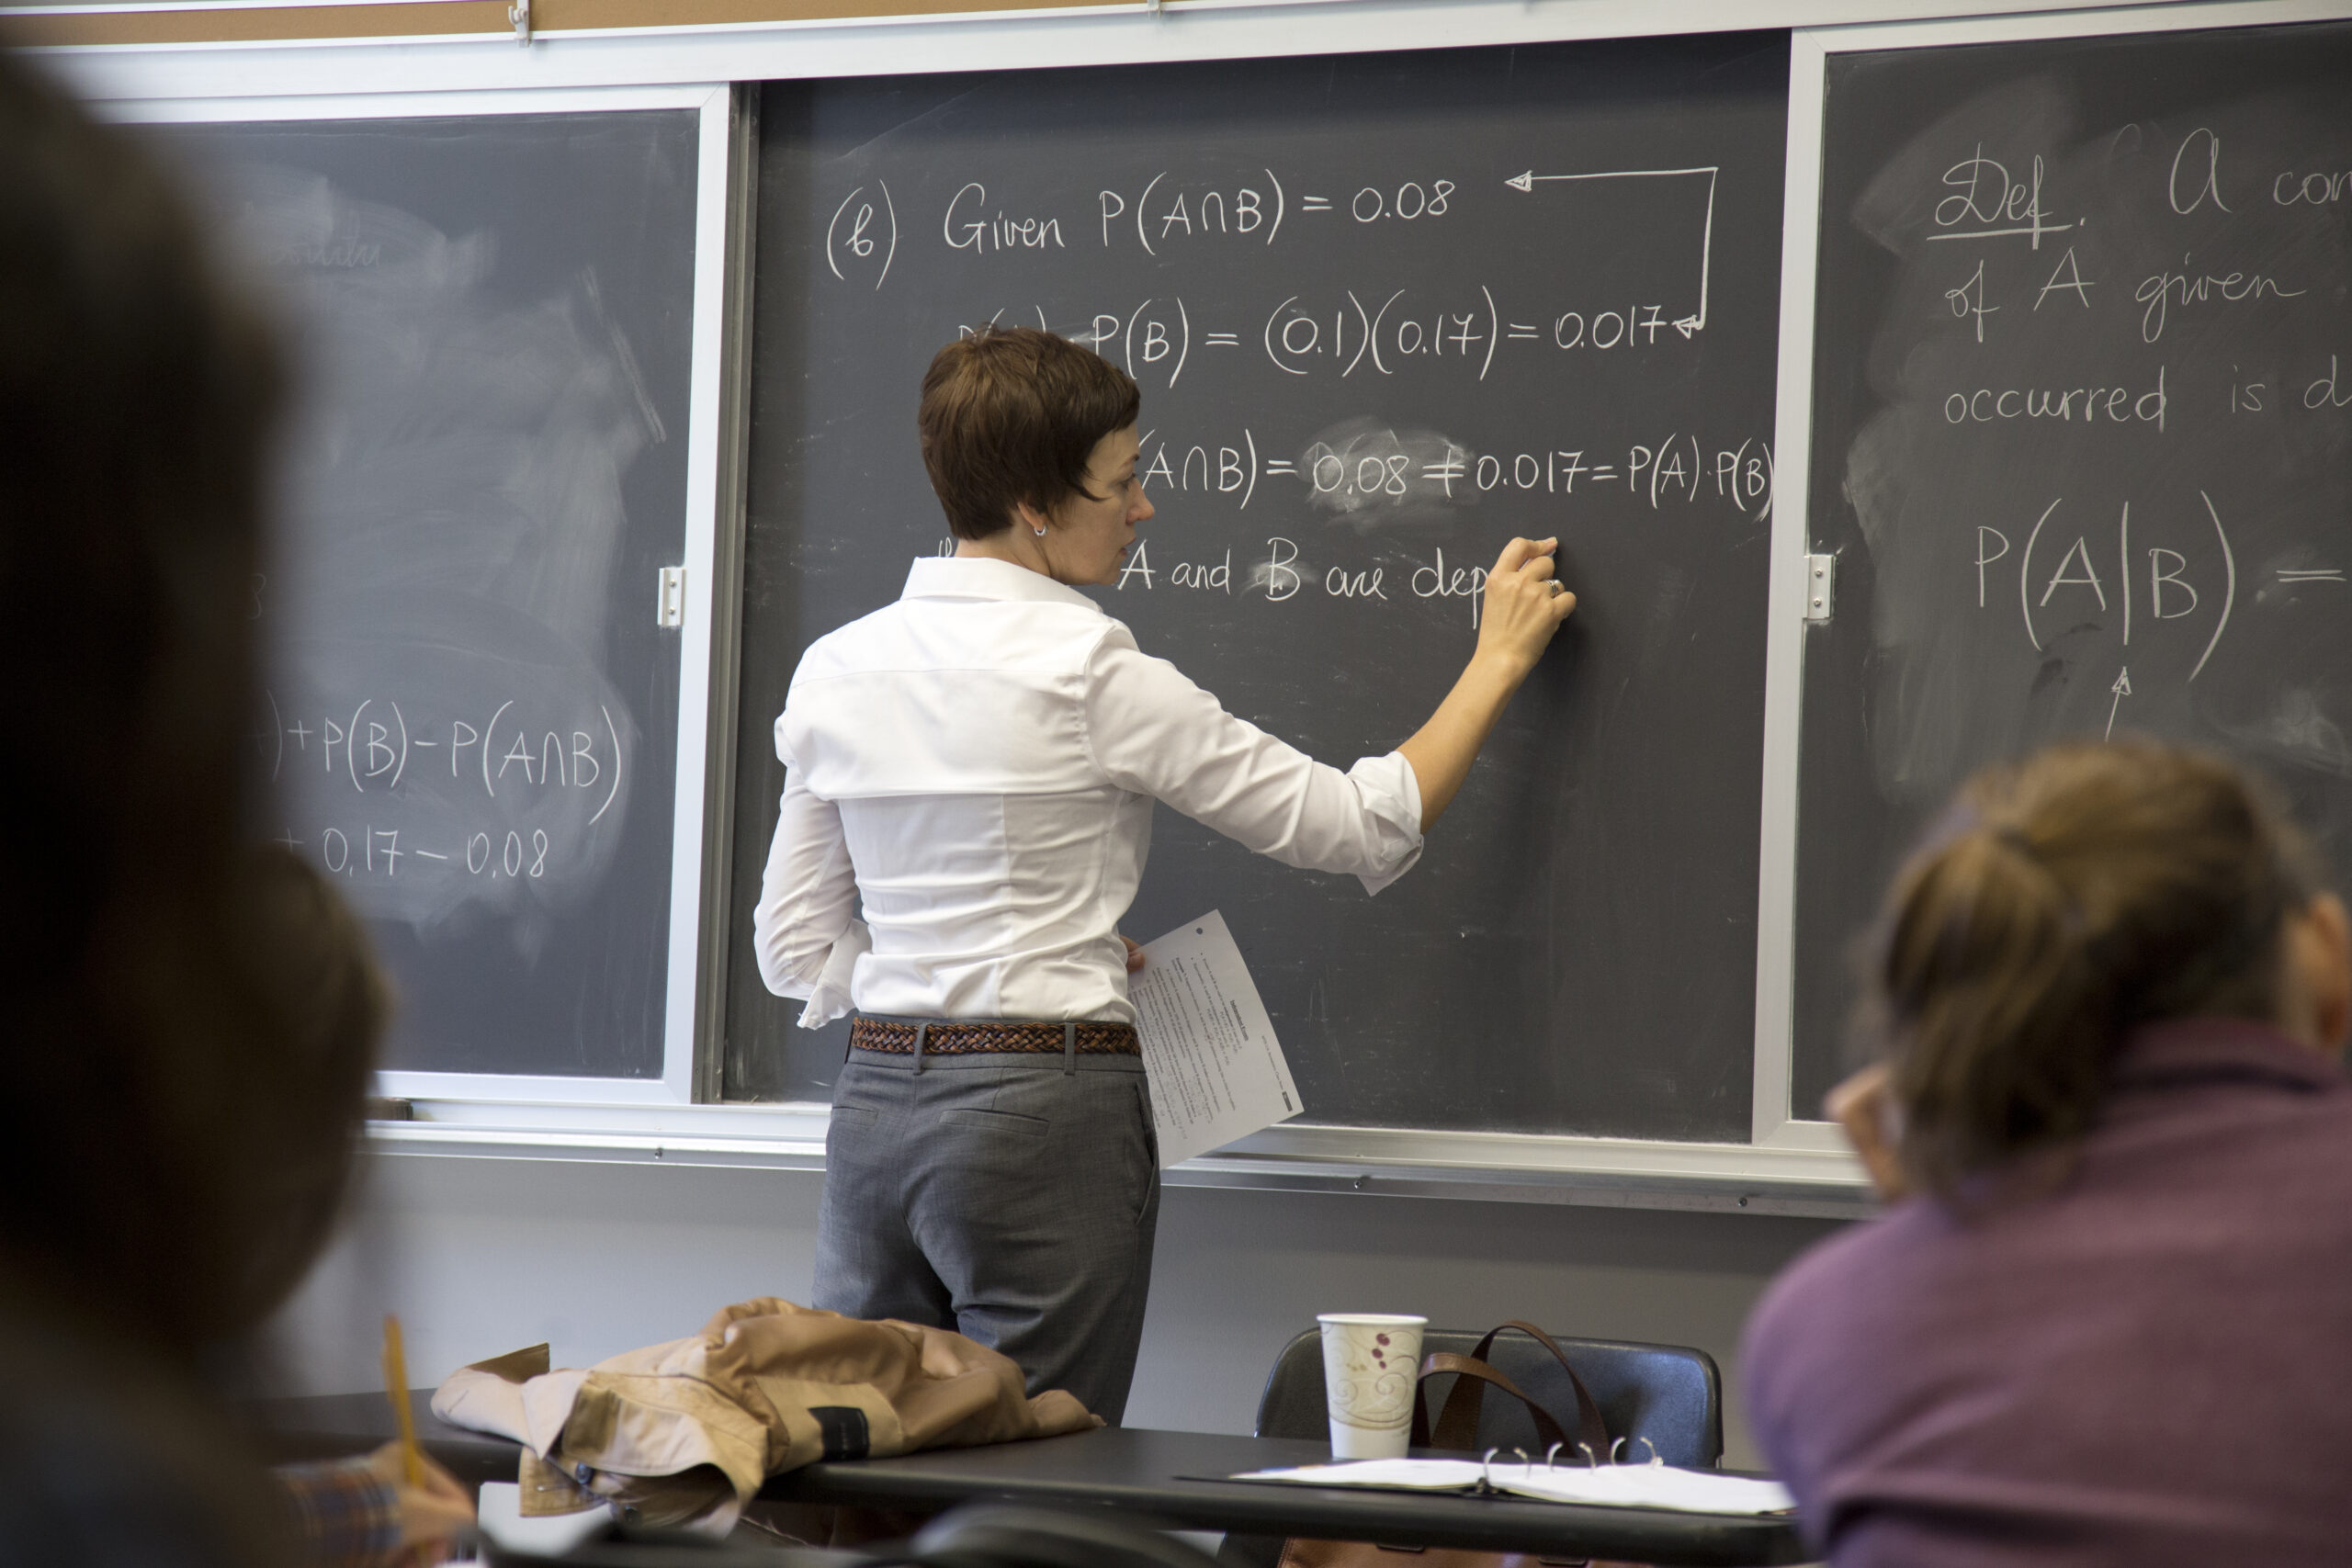 +P(B)-P(A∩B)
+ 0.17 - 0.08
(b) Given P(A∩B) = 0.08
P(B) = (0.1)(0.17) = 0.017
(A∩B) = 0.08 ≠ 0.017 = P(A)·P(B)
A and B are dep
Def. A con
of A given
occurred is d
P(A|B) =